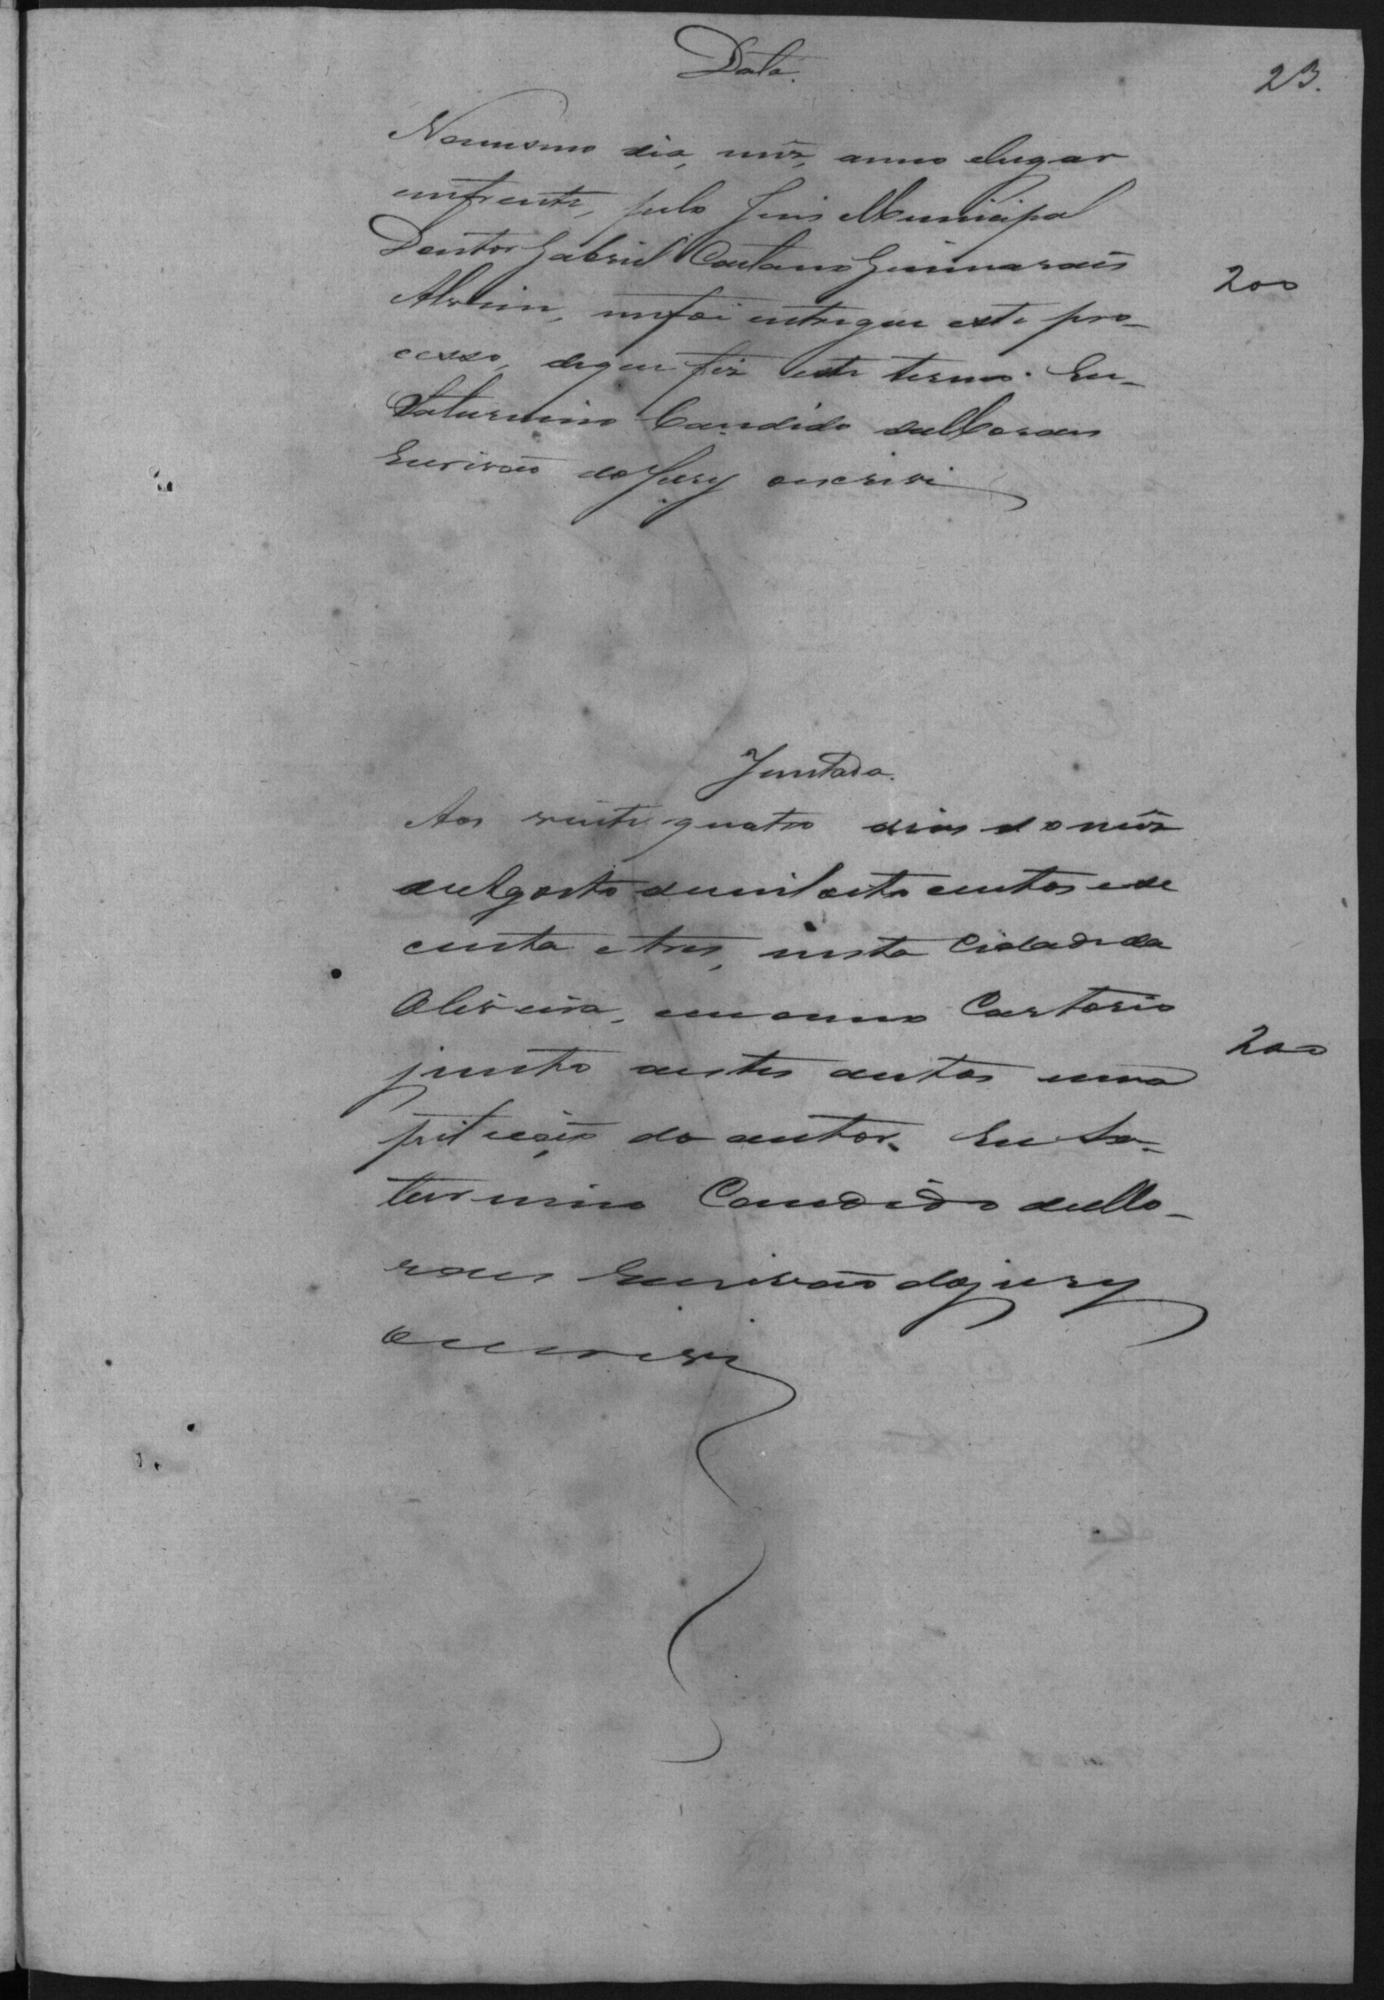 23.
Data.
No mesmo dia, mez, anno e lugar
emfrente, pelo Juis Municipal
Doutor Gabriel Caetano Guimarães
Alvim, me foi entregue este pro-
cesso, de que fiz este termo. Eu
Saturnino Candido de Moraes
Escrivão do Jury o escrivi
200
Juntada.
Aos vinte quatro dias do mez
de Agosto de mil oito centos e se
centa e tres, nesta Cidade da
Oliveira, em o meu Cartorio
junto a estes autos uma
petição do autor. Eu Sa-
turnino Candido de Mo-
raes Escrivão do jury
o escrivi
200